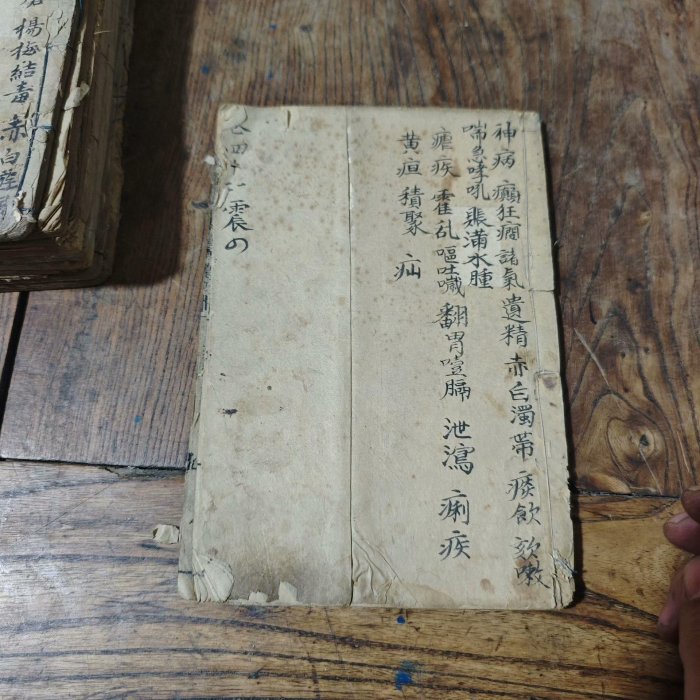 神病 癲狂癇 諸氣 遺精 赤白濁帶 痰飲 欬嗽
喘急哮吼 脹滿水腫
瘧疾 霍乱 嘔吐噦 翻胃噎膈 泄瀉 痢疾
黄疸 積聚 疝
震の
楊梅結毒 赤白